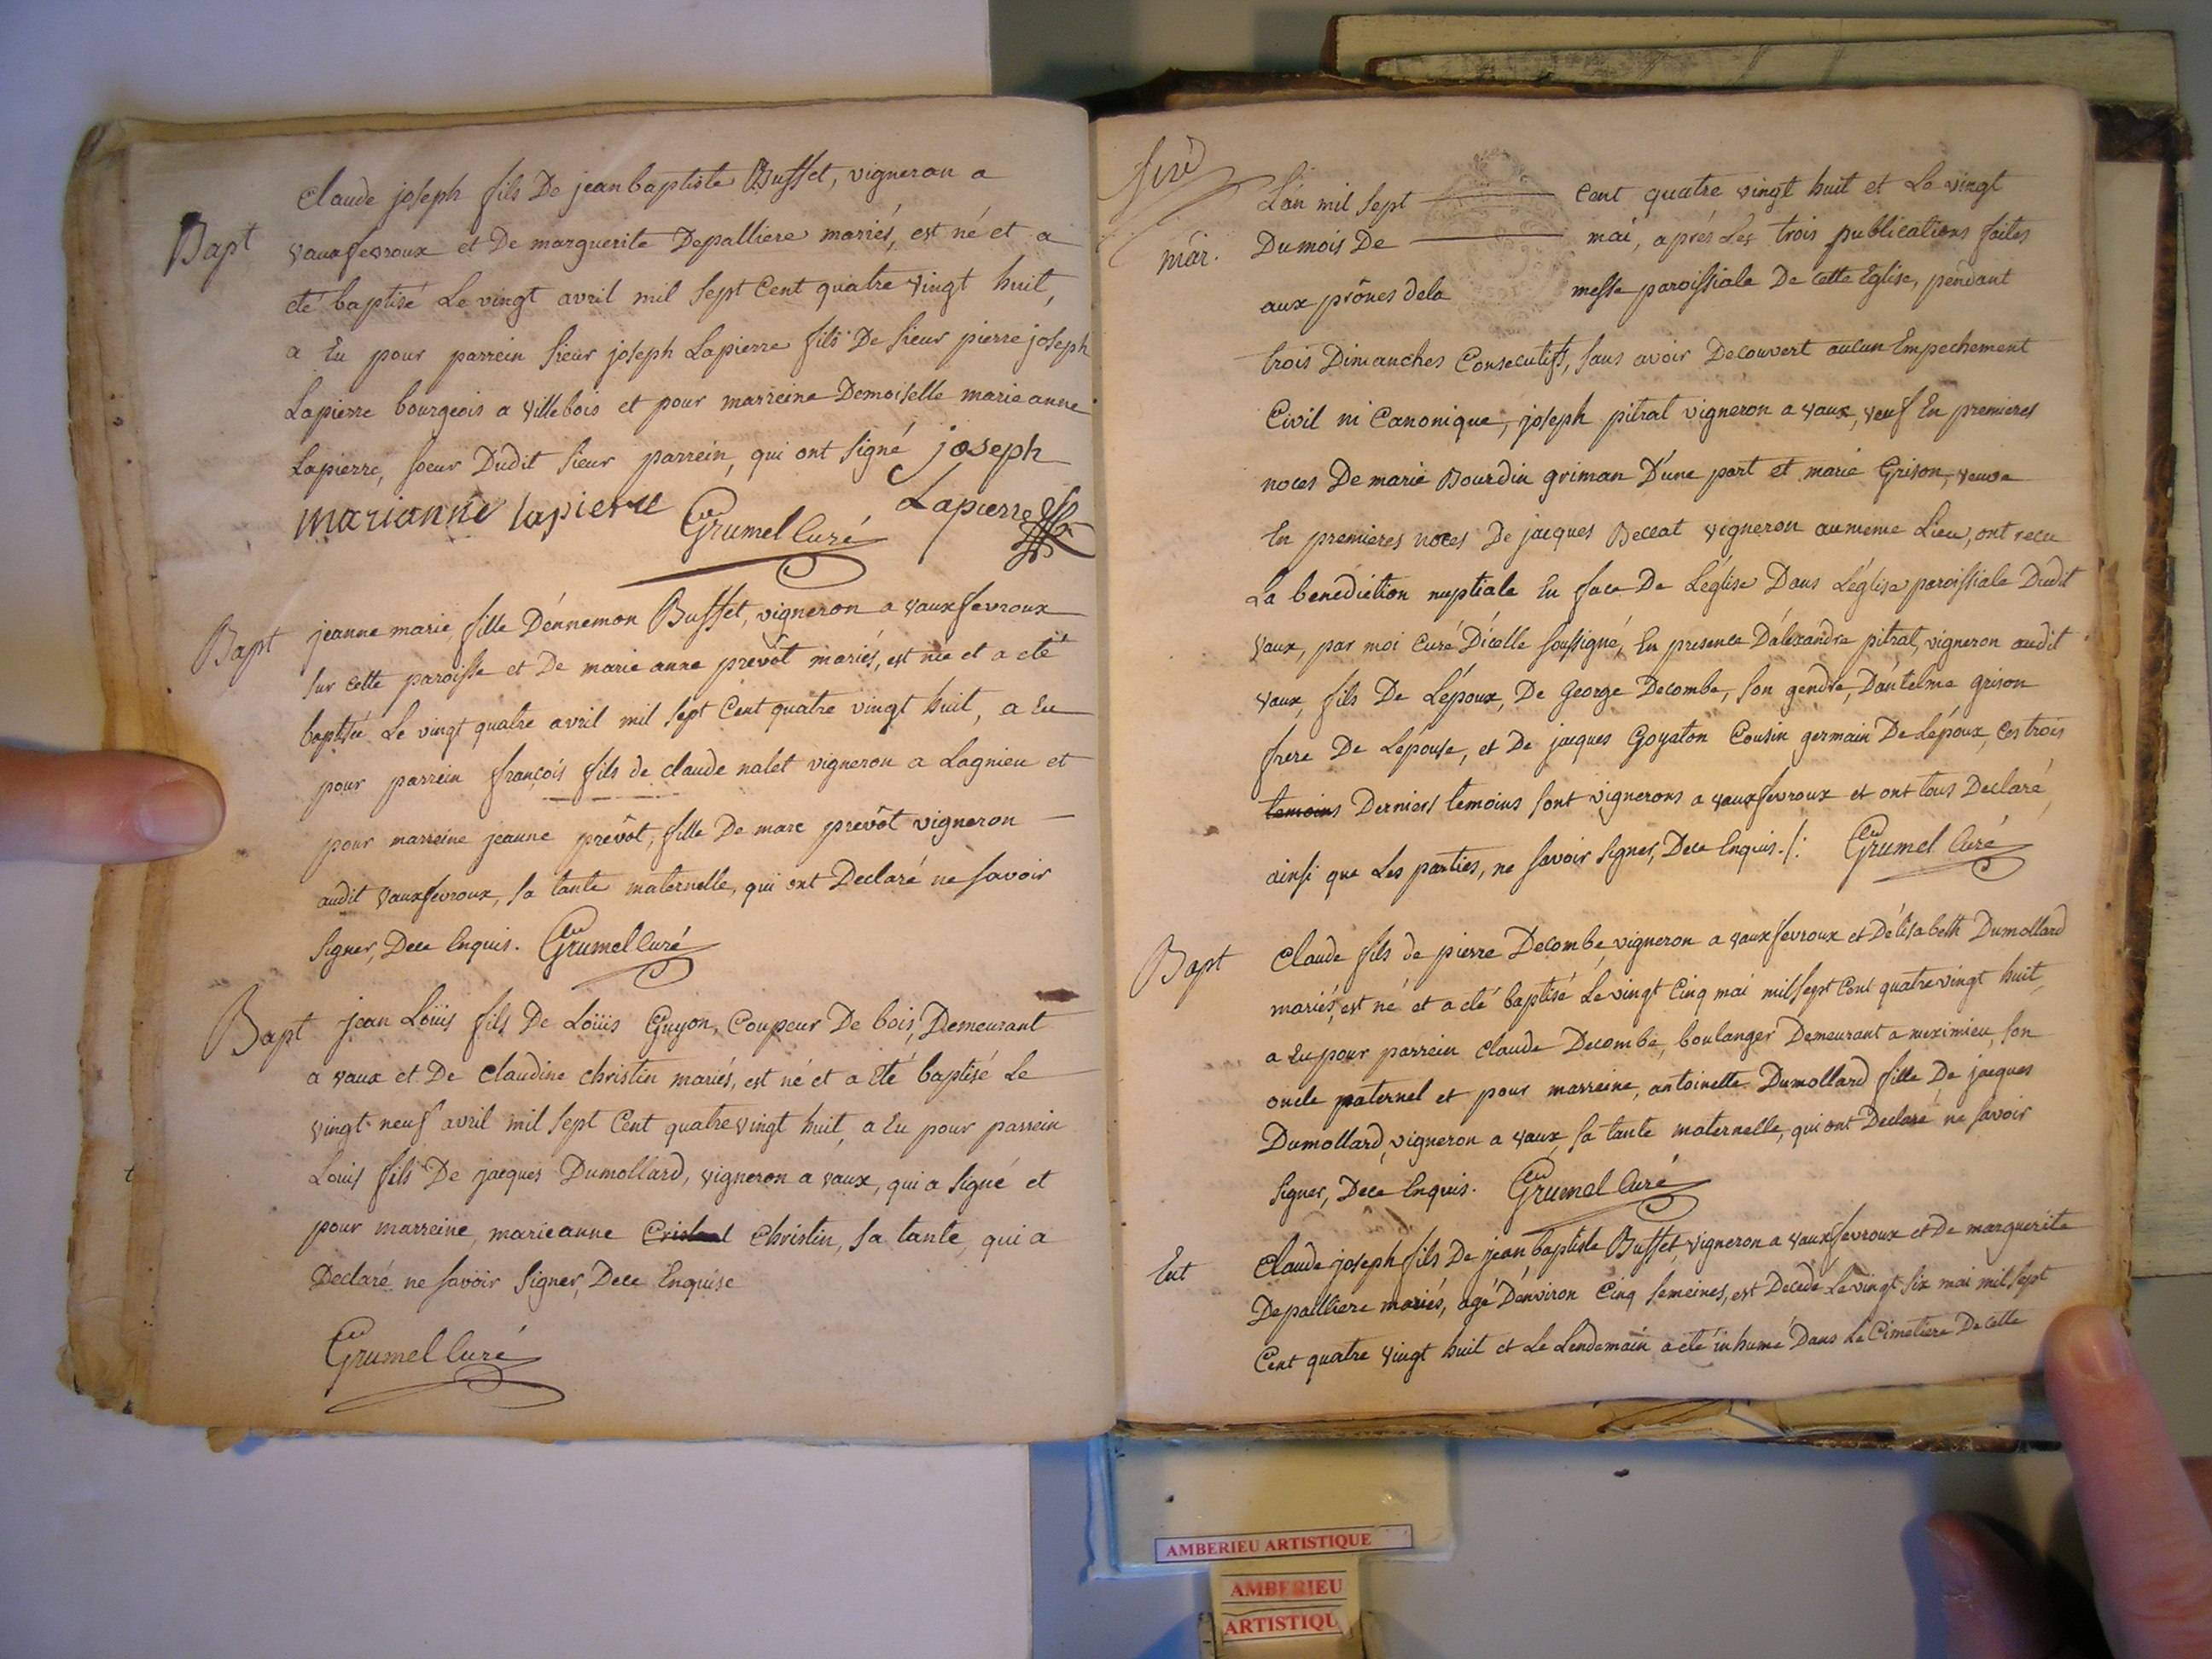 Bapt
Claude joseph fils De jean baptiste Buffet, vigneron a
vauxfevroux et De marguerite Depalliere mariés, est né et a
eté baptisé Le vingt avril mil Sept Cent quatre vingt huit,
a Eu pour parrein Sieur joseph Lapierre fils De Sieur pierre joseph
Lapierre bourgeois a villebois et pour marreine Demoiselle marie anne
Lapierre, soeur Dudit Sieur parrein, qui ont signé joseph
marianne lapierre Grumel Curé Lapierre
Bapt
jeanne marie, fille D'ennemon Buffet, vigneron a vauxfevroux
sur cette paroisse et De marie anne prevôt mariés, est née et a eté
baptisée Le vingt quatre avril mil sept Cent quatre vingt huit, a Eu
pour parrein françois fils de claude nalet vigneron a Lagnieu et
pour marreine jeanne prevôt, fille De marc prevôt vigneron
audit vauxfevroux, sa tante maternelle, qui ont Declaré ne savoir
signer, Dece Enquis. Grumel Curé
Bapt
jean Loüis fils De Loüis Guyon, Coupeur De bois, Demeurant
a vaux et De Claudine christin mariés, est né et a eté baptisé Le
vingt-neuf avril mil sept Cent quatre vingt huit, a Eu pour parrein
Louis fils De jacques Dumollard, vigneron a vaux, qui a signé et
pour marreine, marieanne Christin, sa tante, qui a
Declaré ne savoir signer, Dece Enquise
Grumel Curé
mar.
L'an mil sept cent quatre vingt huit et Le vingt
Dumois De mai, aprés Les trois publications faites
aux prônes dela messe paroissiale De cette Eglise, pendant
trois Dimanches Consecutifs, sans avoir Decouvert aucun Empechement
Civil ni Canonique, joseph pitrat vigneron a vaux, veuf En premieres
noces De marie Bourdin griman D'une part et marie Grison, veuve
En premieres noces De jacques Beccat vigneron aumeme Lieu, ont recu
La benediction nuptiale En face De L'église Dans L'église paroissiale Dudit
vaux, par moi Curé D'icelle soussigné, En presence D'alexandre pitrat, vigneron audit
vaux, fils De L'époux, De George Decombe, son gendre, D'antelme grison
frere De L'épouse, et De jacques Goyaton Cousin germain De L'époux, Ces trois
temoins Derniers temoins sont vignerons a vauxfevroux et ont tous Declaré,
ainsi que Les parties, ne savoir signer, Dece Enquis./: Grumel Curé
Bapt
Claude fils de pierre Decombe, vigneron a vauxfevroux et D'élisabeth Dumollard
mariés, est né et a eté baptisé Le vingt Cinq mai mil sept Cent quatre vingt huit,
a Eu pour parrein claude Decombe, boulanger Demeurant a meximieu, son
oncle paternel et pour marreine, antoinette Dumollard fille De jacques
Dumollard, vigneron a vaux, sa tante maternelle, qui ont Declaré ne savoir
signer, Dece Enquis. Grumel Curé
Ent
Claude joseph fils De jean baptiste Buffet, vigneron a vauxfevroux et de marguerite
Depalliere mariés, agé D'environ Cinq semeines, est Décedé Le vingt-six mai mil sept
Cent quatre vingt huit et Le Lendemain a eté inhumé Dans Le Cimetiere De cette
AMBERIEU ARTISTIQUE
AMBERIEU
ARTISTIQU